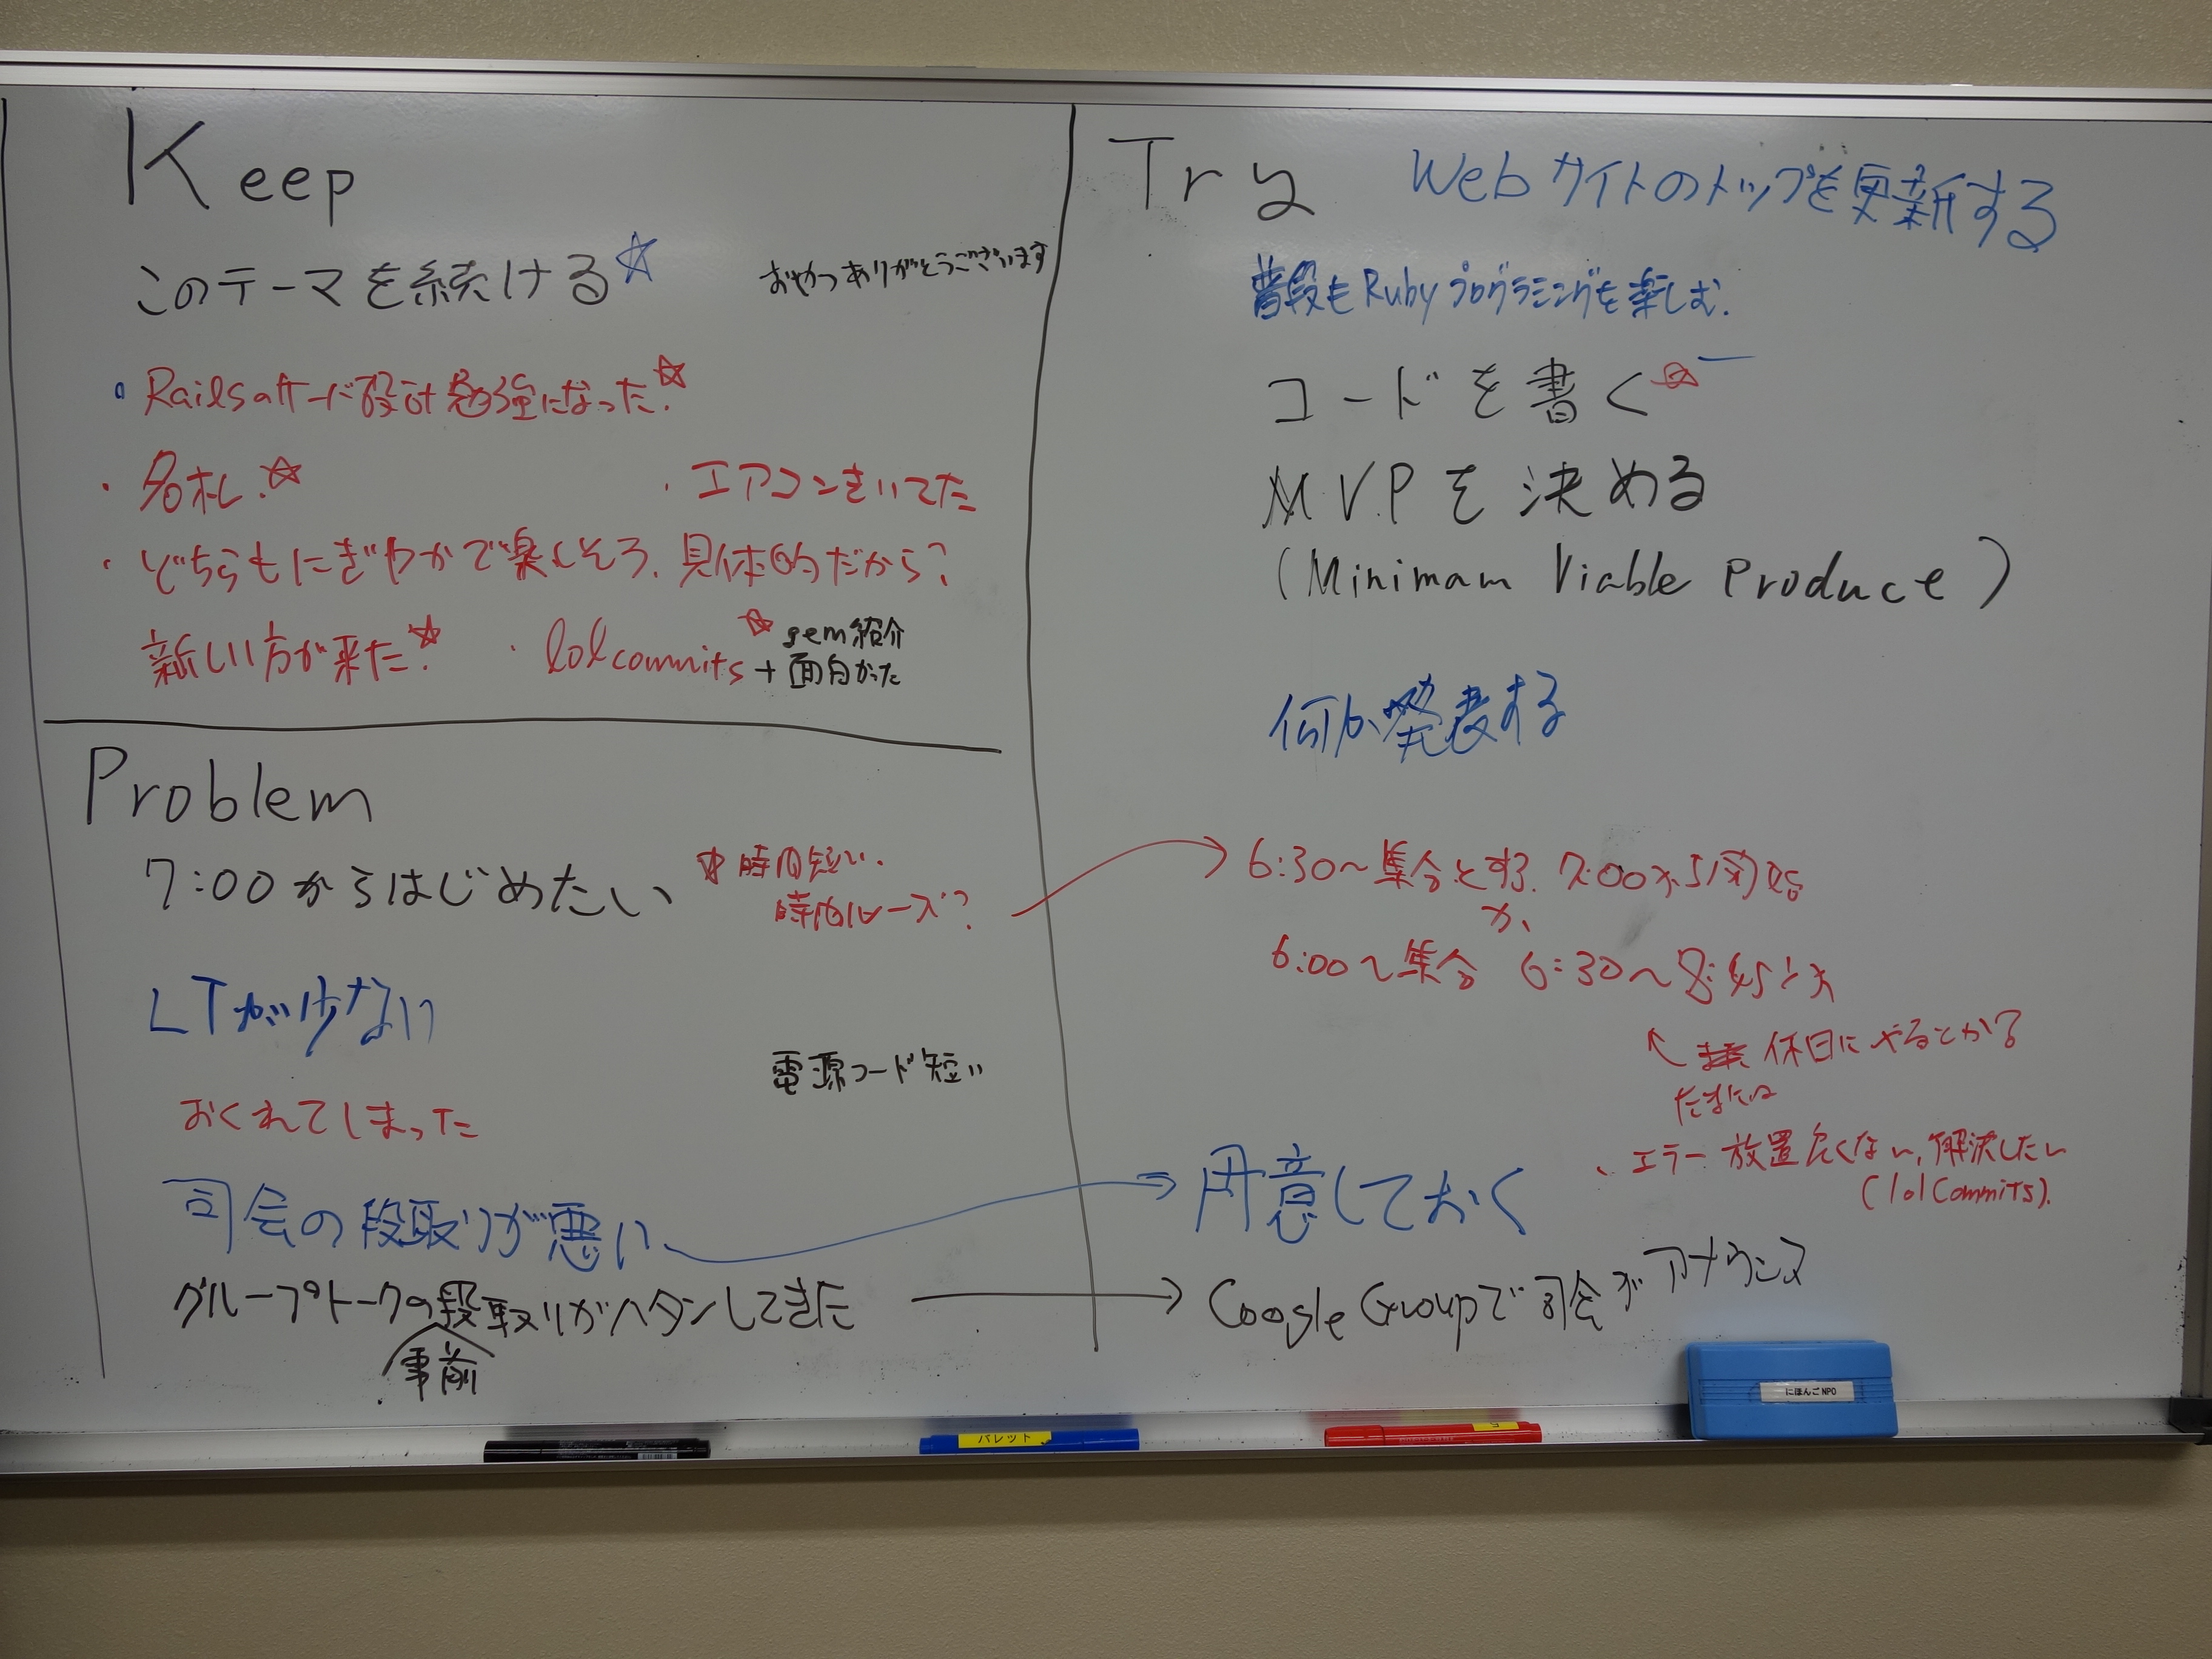 Keep
このテーマを続ける☆
おやつありがとうございます
Railsのサード設計勉強になった.☆
・名札.☆
・エアコンきいてた
・どちらもにぎやかで楽しそう、具体的だから?
新しい方が来た.☆
・lolcommits☆ + gem紹介
面白かった
Problem
7:00からはじめたい
☆時間短い、
時間ルーズ?
LTが少ない
電源コード短い
おくれてしまった
司会の段取りが悪い
グループトークの段取りがハタンしてきた
事前
Try
Webサイトのトップを更新する
普段もRubyプログラミングを楽しむ.
コードを書く☆
M.V.Pを決める
(Minimam Viable Produce)
何か発表する
6:30〜集合とする. 7:00から開始
か、
6:00〜集合 6:30〜8:45とか
休日にやるとか?
たまには
、エラー放置良くない、解決したい
(lolCommits).
用意しておく
Google Groupで司会がアナウンス
にほんごNPO
パレット